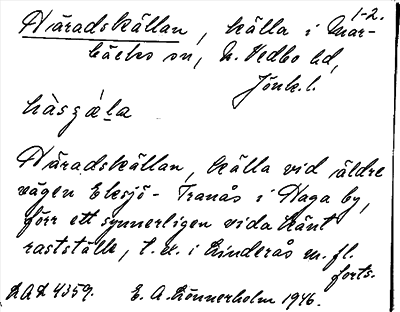 1-2.
Häradskällan, källa i Mar-
bäcks sn, N. Vedbo hd,
Jönk. l.
Häradskällan, källa vid äldre
vägen Eksjö - Tranås i Haga by,
förr ett synnerligen vida känt
rastställe, t. ex. i Linderås m. fl.
forts.
4359. E. A. Lönnerholm 1946.